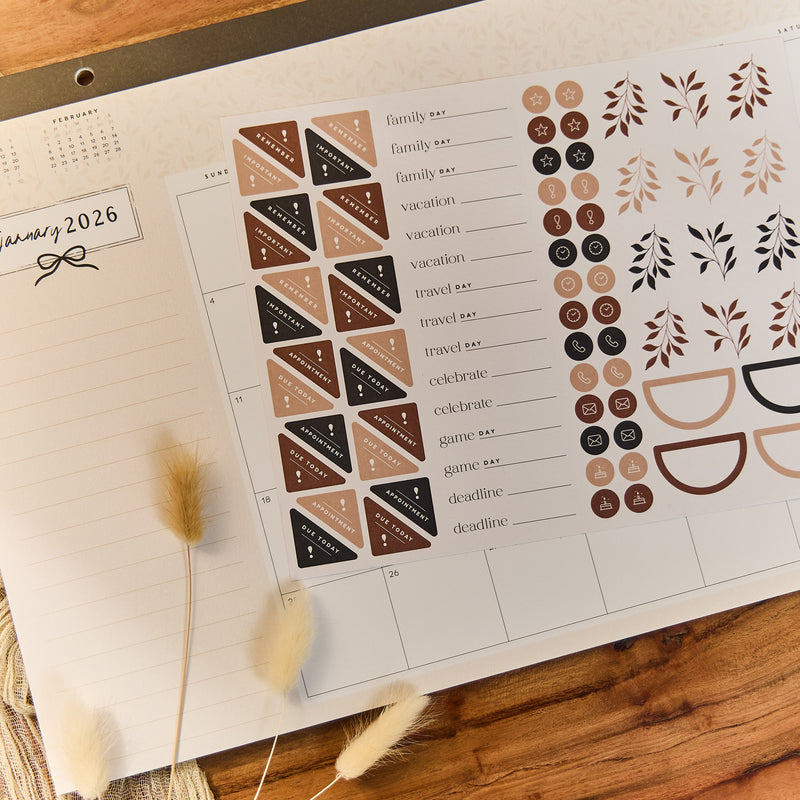 FEBRUARY
January 2026
4
11
18
25
26
REMEMBER
IMPORTANT
REMEMBER
IMPORTANT
REMEMBER
IMPORTANT
REMEMBER
IMPORTANT
REMEMBER
IMPORTANT
REMEMBER
IMPORTANT
APPOINTMENT
DUE TODAY
APPOINTMENT
DUE TODAY
APPOINTMENT
DUE TODAY
APPOINTMENT
DUE TODAY
APPOINTMENT
DUE TODAY
APPOINTMENT
DUE TODAY
family DAY
family DAY
family DAY
vacation
vacation
vacation
travel DAY
travel DAY
travel DAY
celebrate
celebrate
game DAY
game DAY
deadline
deadline